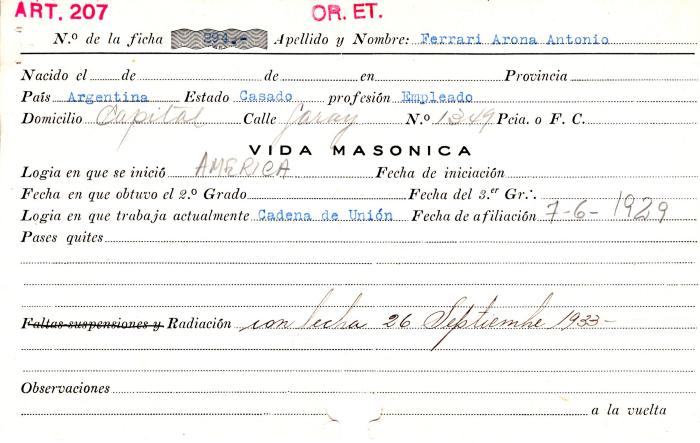 ART. 207 OR. ET.
N.º de la ficha Apellido y Nombre: Ferrari Arona Antonio
Nacido el de de en Provincia
País Argentina Estado Casado profesión Empleado
Domicilio Capital Calle Garay N.º 1349 Pcia. o F. C.
VIDA MASONICA
Logia en que se inició AMERICA Fecha de iniciación
Fecha en que obtuvo el 2.º Grado Fecha del 3.er Gr∴
Logia en que trabaja actualmente Cadena de Unión Fecha de afiliación 7-6-1929
Pases quites
Faltas-suspensiones y Radiación con fecha 26 Septiembre 1933-
Observaciones
a la vuelta